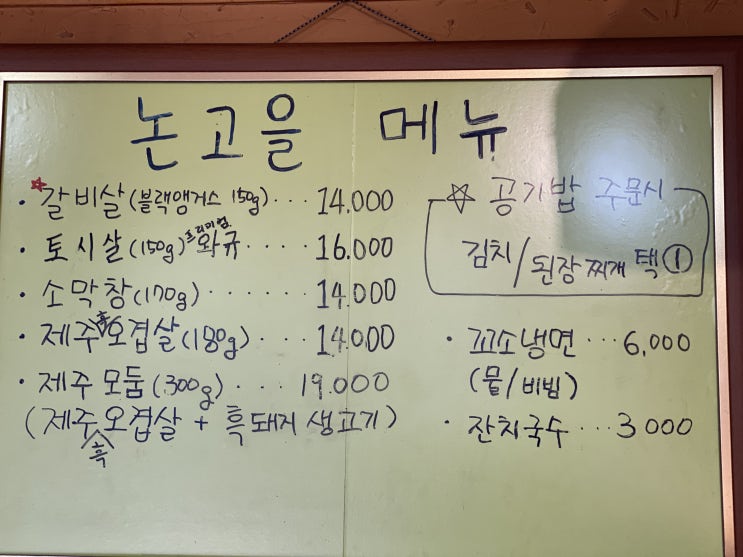 논고을 메뉴
· ☆갈비살(블랙앵거스 150g)··· 14.000
· 토시살(150g) 프리미엄 와규···· 16.000
· 소막창(170g)······ 14.000
· 제주흑오겹살(180g)··· 14.000
· 제주모둠(300g)···· 19.000
(제주흑오겹살 + 흑돼지 생고기)
☆ 공기밥 주문시
김치/된장찌개 택①
· 꼬소냉면···6,000
(물/비빔)
· 잔치국수···3000